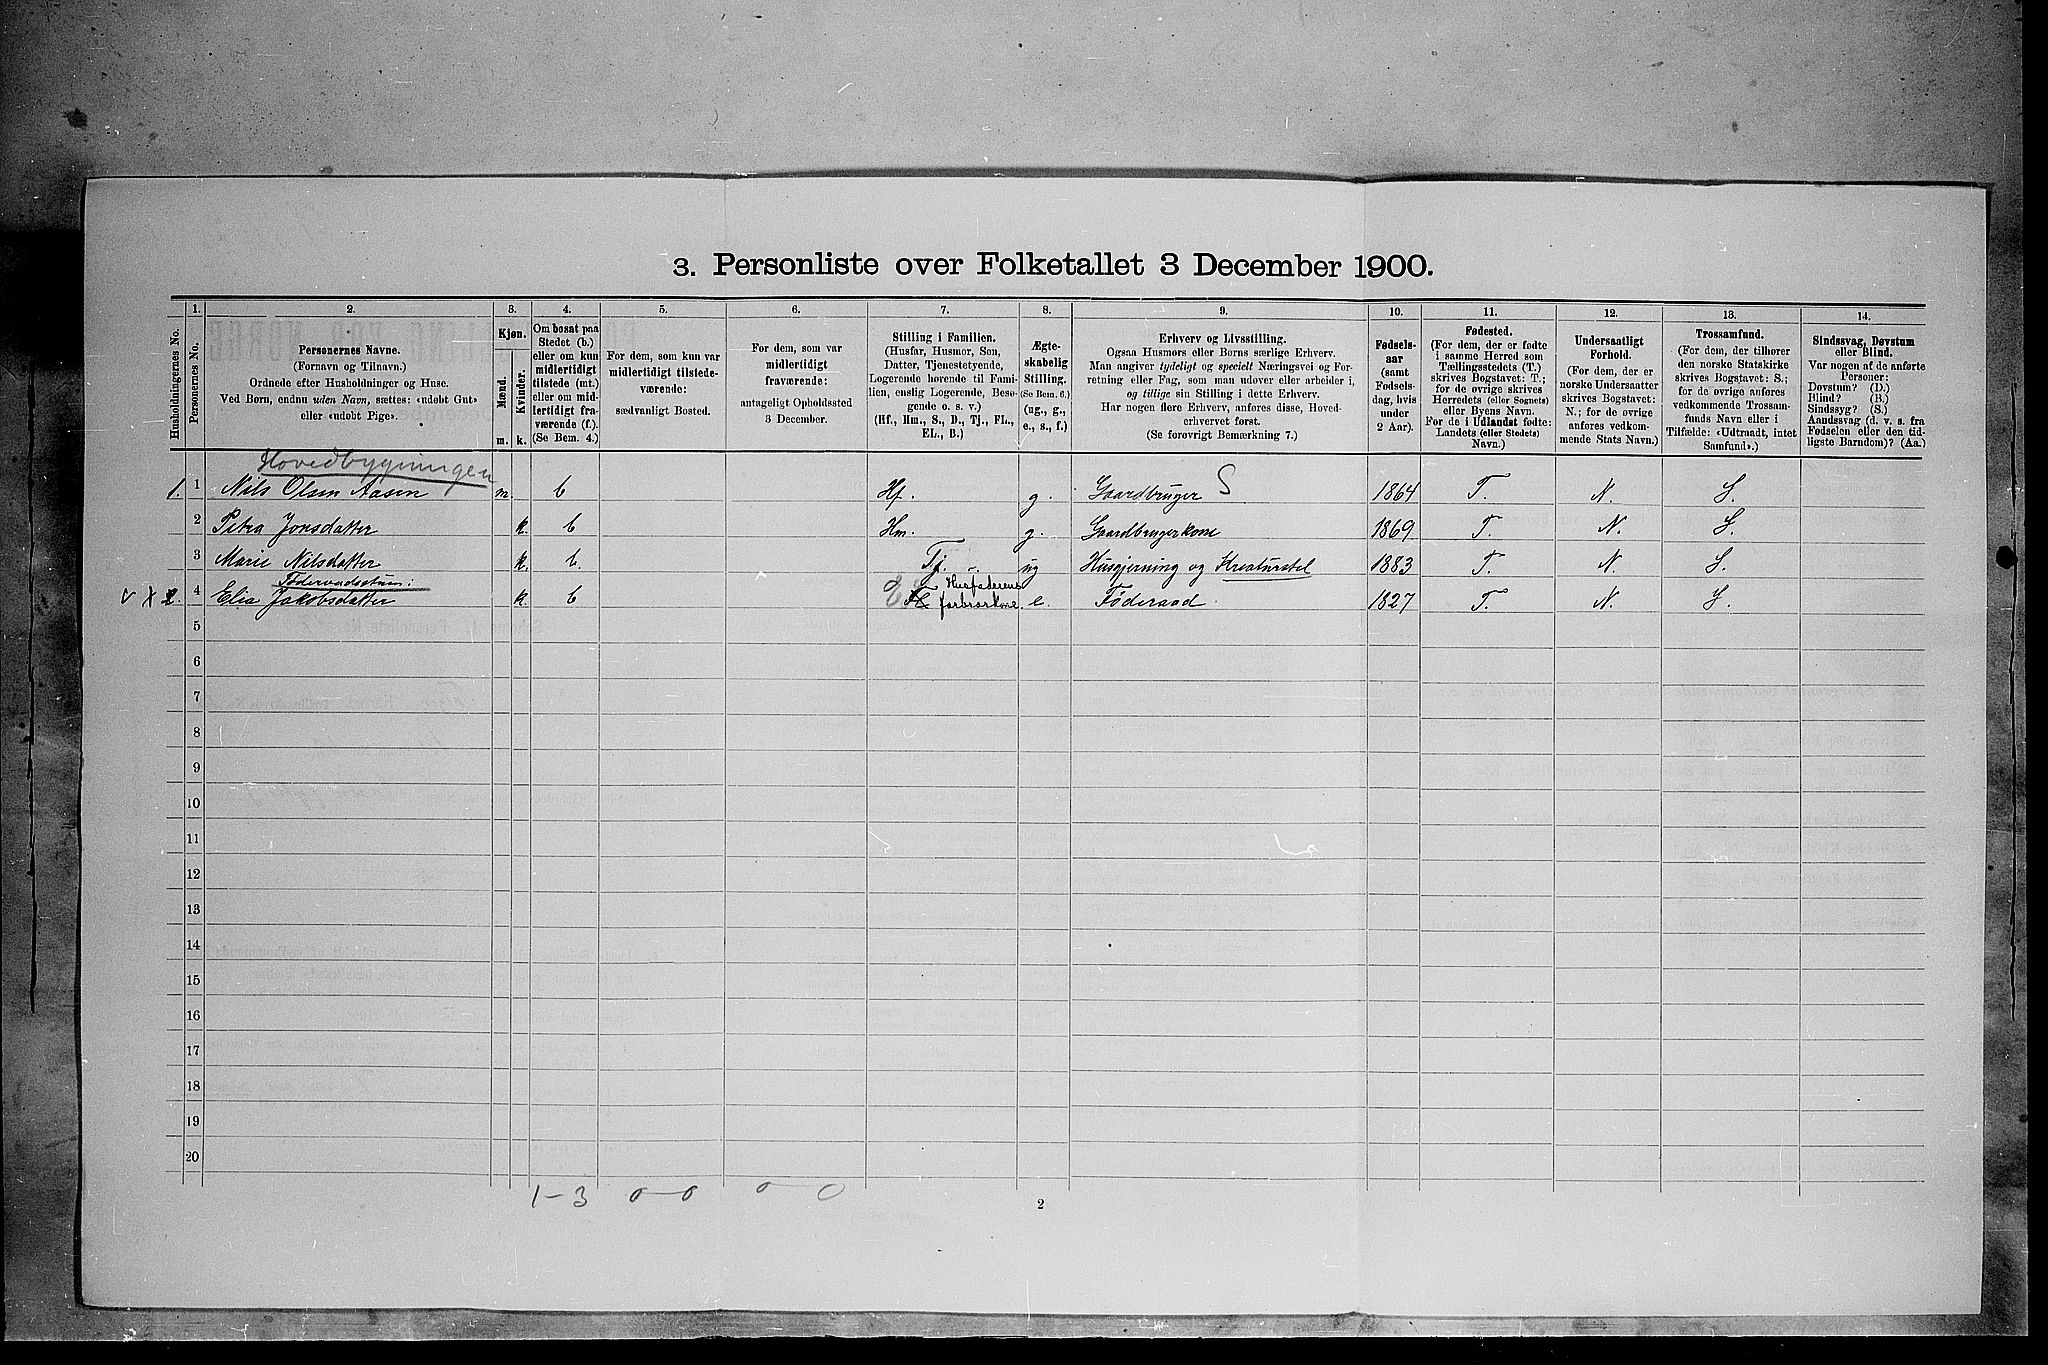 3. Personliste over Folketallet 3 December 1900.
1. 2. 3. 4. 5. 6. 7. 8. 9. 10. 11. 12. 13. 14.
Husholdningernes No.
Personernes No.
Personernes Navne.
(Fornavn og Tilnavn.)
Ordnede efter Husholdninger og Huse.
Ved Børn, endnu uden Navn, sættes: «udøbt Gut»
eller «udøbt Pige».
Kjøn.
Mænd.
Kvinder.
m. k.
Om bosat paa
Stedet (b.)
eller om kun
midlertidigt
tilstede (mt.)
eller om mid-
lertidigt fra-
værende (f.).
(Se Bem. 4.)
For dem, som kun var
midlertidigt tilstede-
værende:
sædvanligt Bosted.
For dem, som var
midlertidigt
fraværende:
antageligt Opholdssted
3 December.
Stilling i Familien.
(Husfar, Husmor, Søn,
Datter, Tjenestetyende,
Logerende hørende til Fami-
lien, enslig Logerende, Besø-
gende o. s. v.)
(Hf., Hm., S., D., Tj., FL.,
EL., B.)
Ægte-
skabelig
Stilling.
(Se Bem. 6.)
(ug., g.,
e., s., f.)
Erhverv og Livsstilling.
Ogsaa Husmors eller Børns særlige Erhverv.
Man angiver tydeligt og specielt Næringsvei og For-
retning eller Fag, som man udøver eller arbeider i,
og tillige sin Stilling i dette Erhverv.
Har nogen flere Erhverv, anføres disse, Hoved-
erhvervet først.
(Se forøvrigt Bemærkning 7.)
Fødsels-
aar
(samt
Fødsels-
dag, hvis
under
2 Aar).
Fødested.
(For dem, der er fødte
i samme Herred som
Tællingsstedets (T.)
skrives Bogstavet: T.;
for de øvrige skrives
Herredets (eller Sognets)
eller Byens Navn.
For de i Udlandet fødte:
Landets (eller Stedets)
Navn.)
Undersaatligt
Forhold.
(For dem, der er
norske Undersaatter
skrives Bogstavet:
N.; for de øvrige
anføres vedkom-
mende Stats Navn.)
Trossamfund.
(For dem, der tilhører
den norske Statskirke
skrives Bogstavet: S.;
for de øvrige anføres
vedkommende Trossam-
funds Navn eller i
Tilfælde: «Udtraadt, intet
Samfund».)
Sindssvag, Døvstum
eller Blind.
Var nogen af de anførte
Personer:
Døvstum? (D.)
Blind? (B.)
Sindssyg? (S.)
Aandssvag (d. v. s. fra
Fødselen eller den tid-
ligste Barndom)? (Aa.)
Hovedbygningen
1. 1 Nils Olsen Aasen m. b Hf. g. Gaardbruger S 1864 T. N. S.
2 Petra Jonsdatter k. b Hm. g. Gaardbrugerkone 1869 T. N. S.
3 Marie Nilsdatter k. b. Tj. ug Husgjerning og Kreaturstel 1883 T. N. S.
Føderaadsstuen: Husfaderens
v x 2. 4 Elia Jakobsdatter k. b farbrorkone e. Føderaad. 1827 T. N. S.
5
6
7
8
9
10
11
12
13
14
15
16
17
18
19
20
1-3 0-0 0 0
2